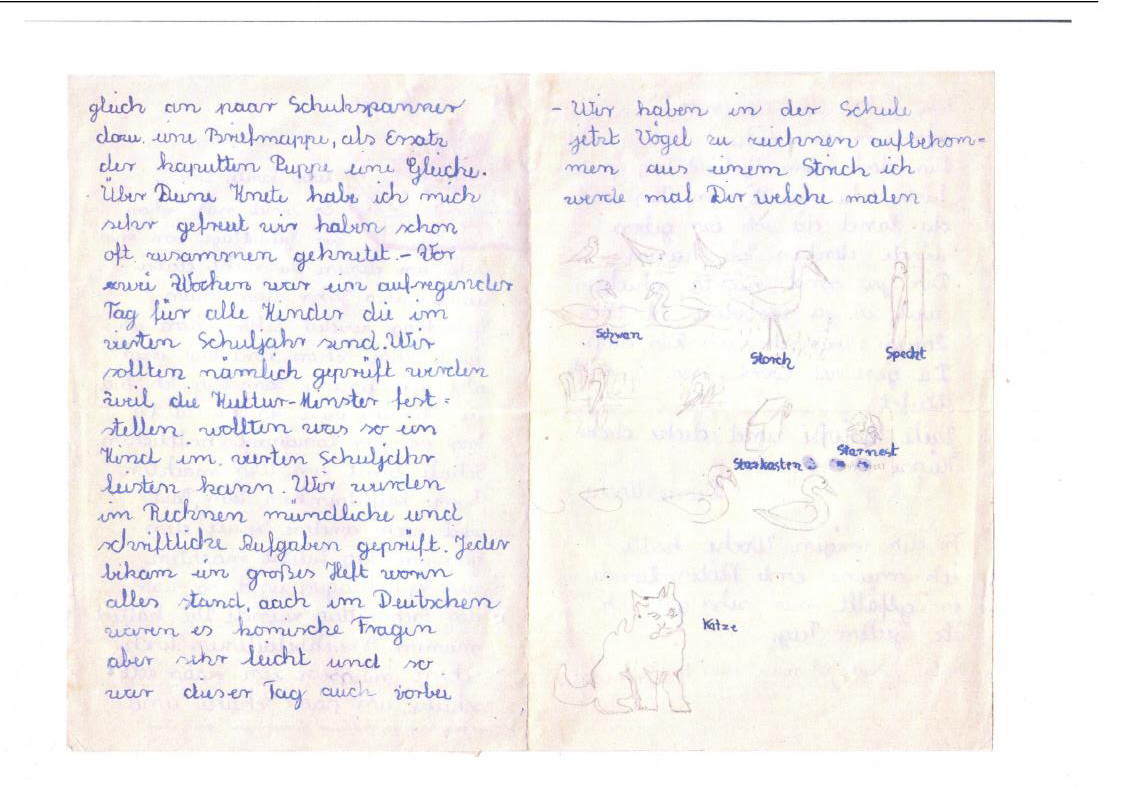 gleich an paar Schuhspanner
dazu eine Briefmappe, als Ersatz
der kaputten Puppe eine Gleiche.
Über Deine Knete habe ich mich
sehr gefreut wir haben schon
oft zusammen geknetet. - Vor
zwei Wochen war ein aufregender
Tag für alle Kinder die im
vierten Schuljahr sind. Wir
sollten nämlich geprüft werden
weil die Kultur-Minster fest=
stellen wollten was so ein
Kind im vierten Schuljahr
leisten kann. Wir wurden
im Rechnen mündliche und
schriftliche Aufgaben geprüft. Jeder
bekam ein großes Heft worin
alles stand, auch im Deutschen
waren es komische Fragen
aber sehr leicht und so
war dieser Tag auch vorbei
- Wir haben in der Schule
jetzt Vögel zu zeichnen aufbekom=
men aus einem Strich ich
werde mal Dir welche malen
Schwan
Storch
Specht
Starkasten
Starnest
Katze